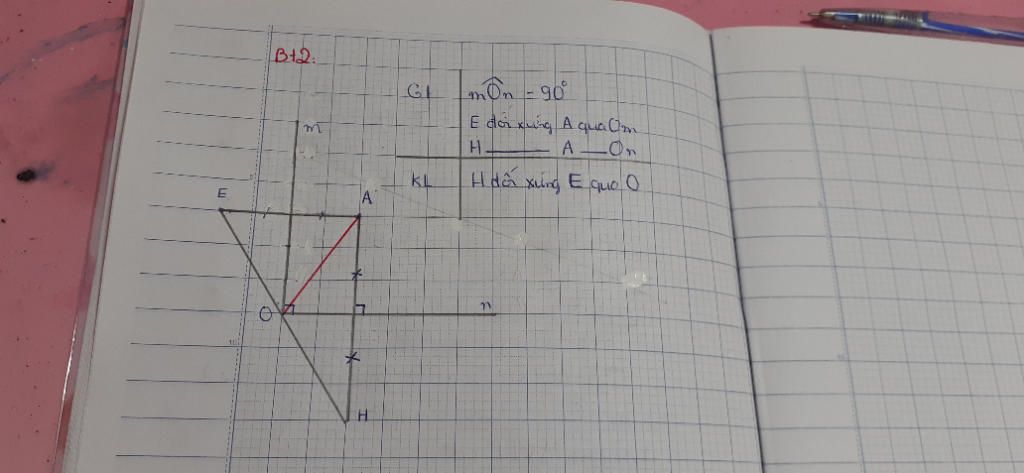 Bt2.
GT mÔn = 90°
E đối xứng A qua Om
H ——— A — On
KL H đối xứng E qua O
m
E
A
O
n
H